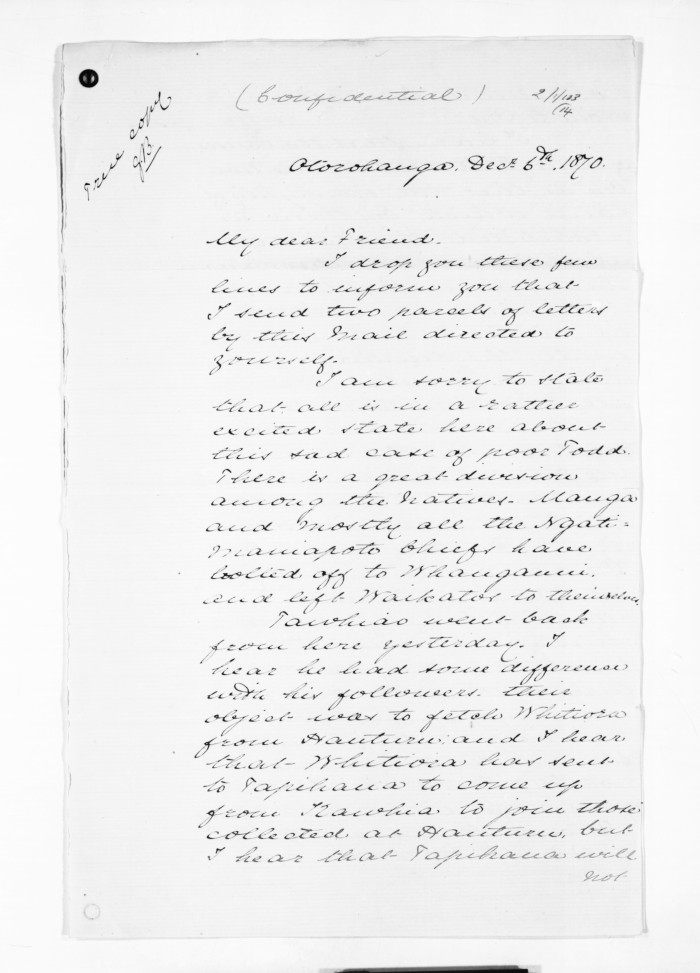 True copy
GB
(Confidential)
2/1/103
/14
Otorohanga. Decr 6th, 1870.
My dear Friend.
I drop you these few
lines to inform you that
I send two parcels of letters
by this Mail directed to
yourself.
I am sorry to state
that all is in a rather
excited state here about
this sad case of poor Todd.
There is a great division
among the Natives. Manga
and mostly all the Ngati-
Maniapoto Chiefs have
bolted off to Whanganui.
and left Waikatos to themselves
Tawhiao went back
from here yesterday. I
hear he had some difference
with his followers. their
object was to fetch Whitiora
from Hauturu; and I hear
that Whitiora has sent
to Tapihana to come up
from Kawhia to join those
collected at Hauturu, but
I hear that Tapihana will
not